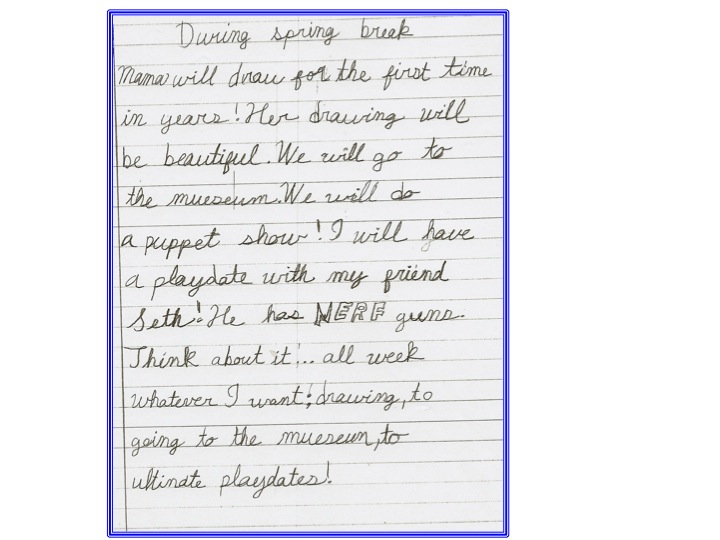 During spring break
Mama will draw for the first time
in years! Her drawing will
be beautiful. We will go to
the mueseum. We will do
a puppet show! I will have
a playdate with my friend
Seth! He has NERF guns.
Think about it... all week
whatever I want; drawing, to
going to the mueseun, to
ultinate playdates!